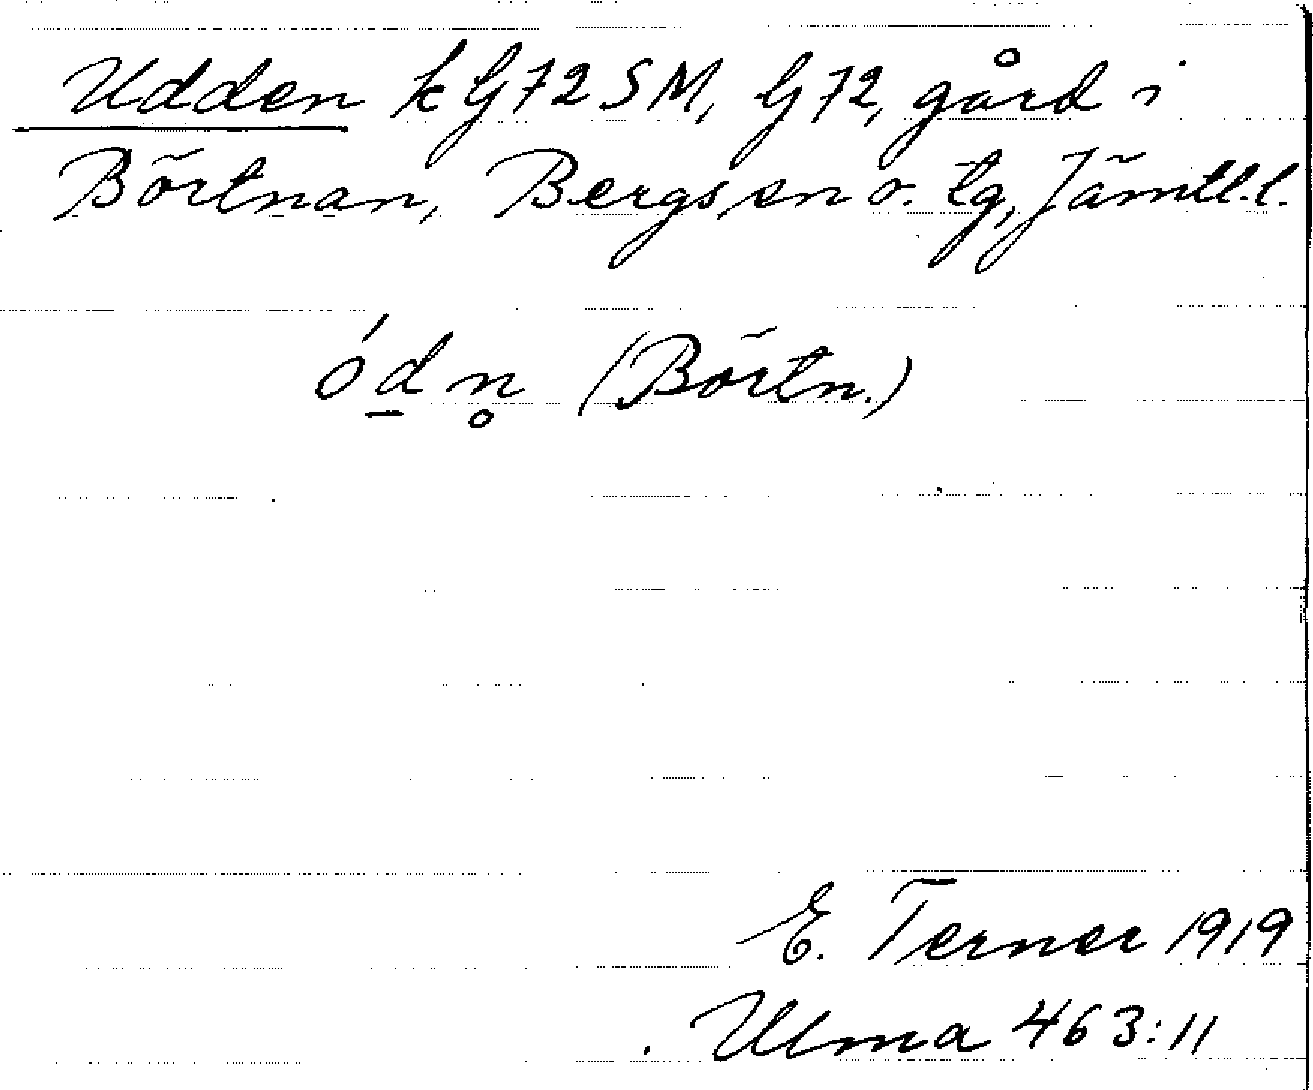 Udden k G72SM, G72, gård i
Börtnan, Bergs sn o. tg, Jämtl.l.
ód̲n̥ (Börtn.)
E. Terner 1919
Ulma 463:11